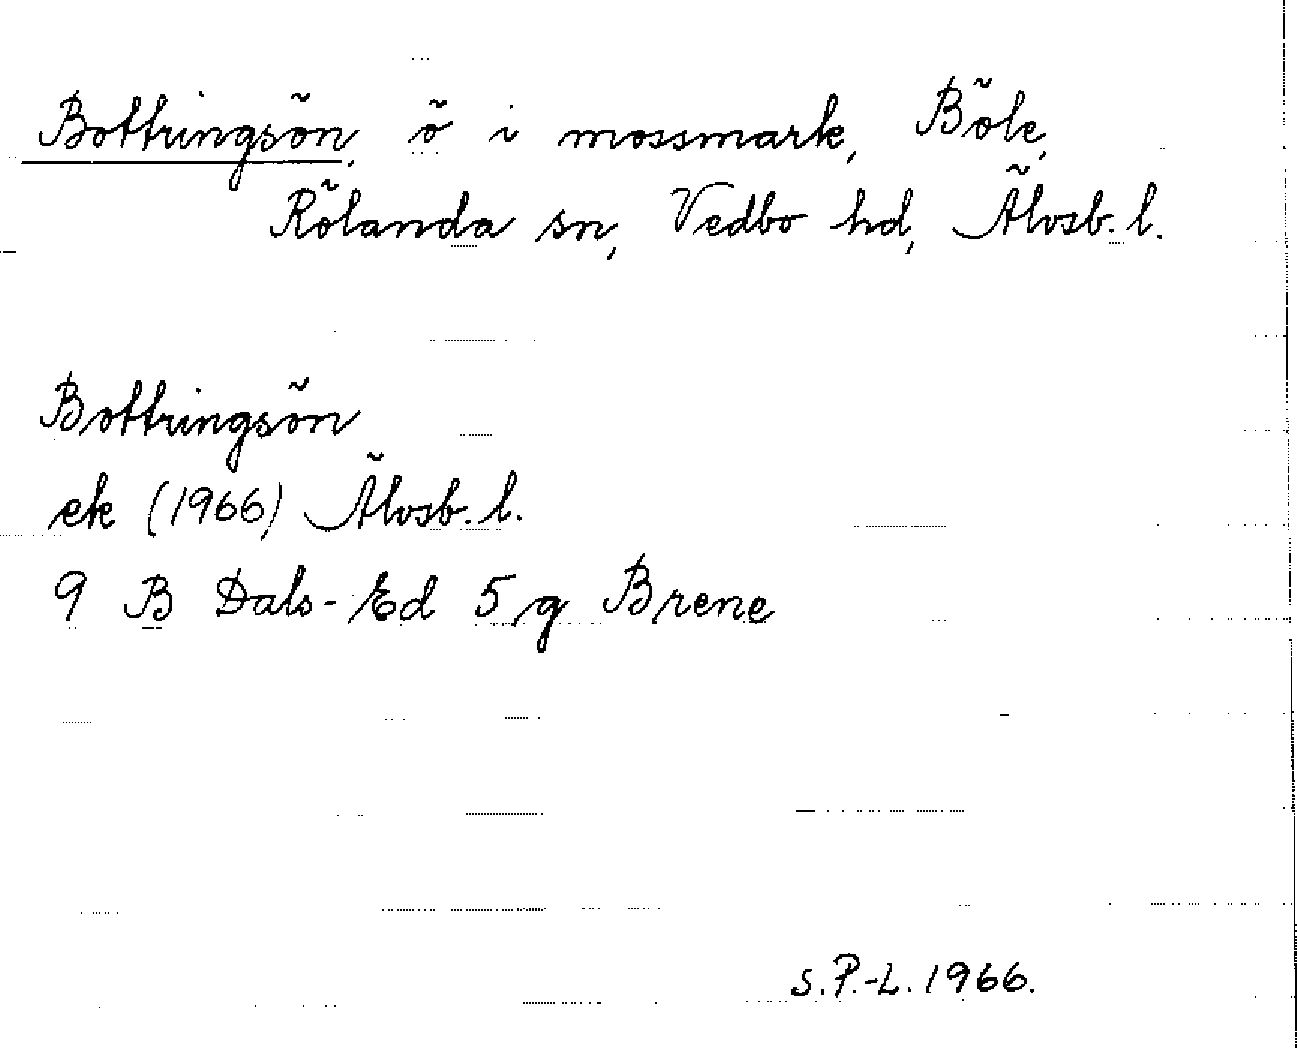 Bottringsön, ö i mossmark, Böle,
Rölanda sn, Vedbo hd, Älvsb. l.
Bottringsön
ek (1966) Älvsb. l.
9 B Dals-Ed 5 g Brene
S. P.-L. 1966.